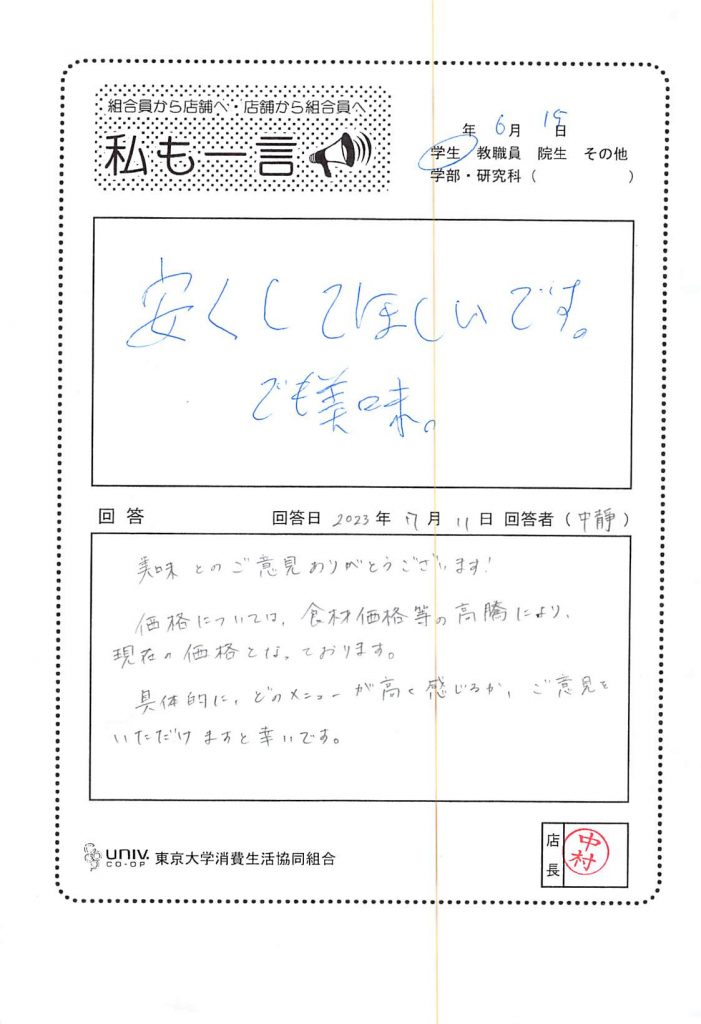 組合員から店舗へ・店舗から組合員へ
私も一言
年 6月 15日
学生 教職員 院生 その他
学部・研究科（ ）
安くしてほしいです。
でも美味。
回答 回答日 2023年 7月 11日 回答者（中静）
美味とのご意見ありがとうございます!
価格については、食材価格等の高騰により、
現在の価格となっております。
具体的に、どのメニューが高く感じるか、ご意見を
いただけますと幸いです。
UNIV. CO-OP 東京大学消費生活協同組合
店長 中村